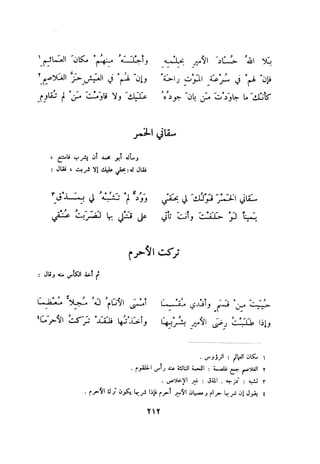 بَلا اللهُ حُسّادَ الأميرِ بحِلْمِهِ وأجْلَسَهُ مِنهُمْ مكانَ العَمائِمِ١
فإنّ لهُمْ في سُرْعَةِ المَوْتِ راحَةً وإنّ لهُمْ في العَيْشِ حَزَّ الغَلاصِمِ٢
كأنّكَ ما جاوَدْتَ مَنْ بانَ جودُهُ عَلَيكَ ولا قاوَمْتَ مَنْ لم تُقاوِمِ
سقاني الخمر
وسأله أبو محمد أن يشرب فامتنع ،
فقال له : بحقي عليك إلا شربت ، فقال :
سَقاني الخَمْرَ قَوْلُكَ لي بحَقّي وَوُدٌّ لمْ تَشُبْهُ لي بمَذْقِ٣
يَمِيناً لَوْ حَلَفْتَ وأنتَ تَأتي على قَتْلي بها لضَرَبْتُ عُنْقي
تركت الأحرم
ثم أخذ الكأس منه وقال :
حُيِّيتَ مِنْ قَسَمٍ وأفْدي مُقْسِمَا أمْسَى الأنَامُ لَهُ مُجِلّاً مُعْظِمَا
وإذا طَلَبْتُ رِضَى الأميرِ بشُرْبِهَا وأخَذْتُها فلَقَدْ تَرَكْتُ الأحْرَمَا٤
١ مكان العمائم : الرؤوس .
٢ الغلاصم جمع غلصمة : اللحمة الناتئة عند رأس الحلقوم .
٣ تشبه : تمزجه . المذق : غير الإخلاص .
٤ يقول إن شربها حرام وعصيان الأمير أحرم فإذا شربها يكون ترك الأحرم .
٢١٢